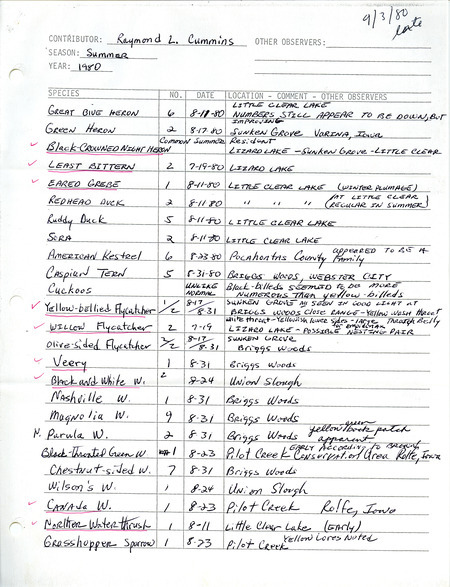 9/3/80
late
CONTRIBUTOR: Raymond L. Cummins OTHER OBSERVERS:
SEASON: Summer
YEAR: 1980
SPECIES NO. DATE LOCATION - COMMENT - OTHER OBSERVERS
Great Blue Heron 6 8-11-80 Little Clear Lake Numbers still appear to be down, but improving
Green Heron 2 8-17-80 Sunken Grove Varina, Iowa
Black-Crowned Night Heron Common Summer Resident Lizard Lake - Sunken Grove - Little Clear
Least Bittern 2 7-19-80 Lizard Lake
Eared Grebe 1 8-11-80 Little Clear Lake (winter plumage)
Redhead Duck 2 8-11-80 " " " (at Little Clear (regular in summer)
Ruddy Duck 5 8-11-80 Little Clear Lake
Sora 2 8-11-80 Little Clear Lake
American Kestrel 6 8-23-80 Pocahontas County appeared to be a family
Caspian Tern 5 8-31-80 Briggs Woods, Webster City
Cuckoos unlike normal Black-billeds seemed to be more numerous than yellow-billeds
Yellow-bellied Flycatcher 1/2 8-17/8-31 Sunken Grove as seen in good light at Briggs Woods close range - yellow wash throat
Willow Flycatcher 2 7-19 Lizard Lake - possible nesting pair white throat - yellowish lower sides - large for empidonax
Olive-sided Flycatcher 1/2 8-17/8-31 Sunken Grove Briggs Woods
Veery 1 8-31 Briggs Woods
Black and White W. 2 8-24 Union Slough
Nashville W. 1 8-31 Briggs Woods
Magnolia W. 9 8-31 Briggs Woods
N. Parula W. 2 8-31 Briggs Woods yellow green back patch apparent
Black-throated Green W 1 8-23 Pilot Creek Conservation Area Rolfe, Iowa early according to
Chestnut-sided W. 7 8-31 Briggs Woods
Wilson's W. 1 8-24 Union Slough
Canada W. 1 8-23 Pilot Creek Rolfe, Iowa
Northern Waterthrush 1 8-11 Little Clear Lake (Early)
Grasshopper Sparrow 1 8-23 Pilot Creek Yellow Lores Noted